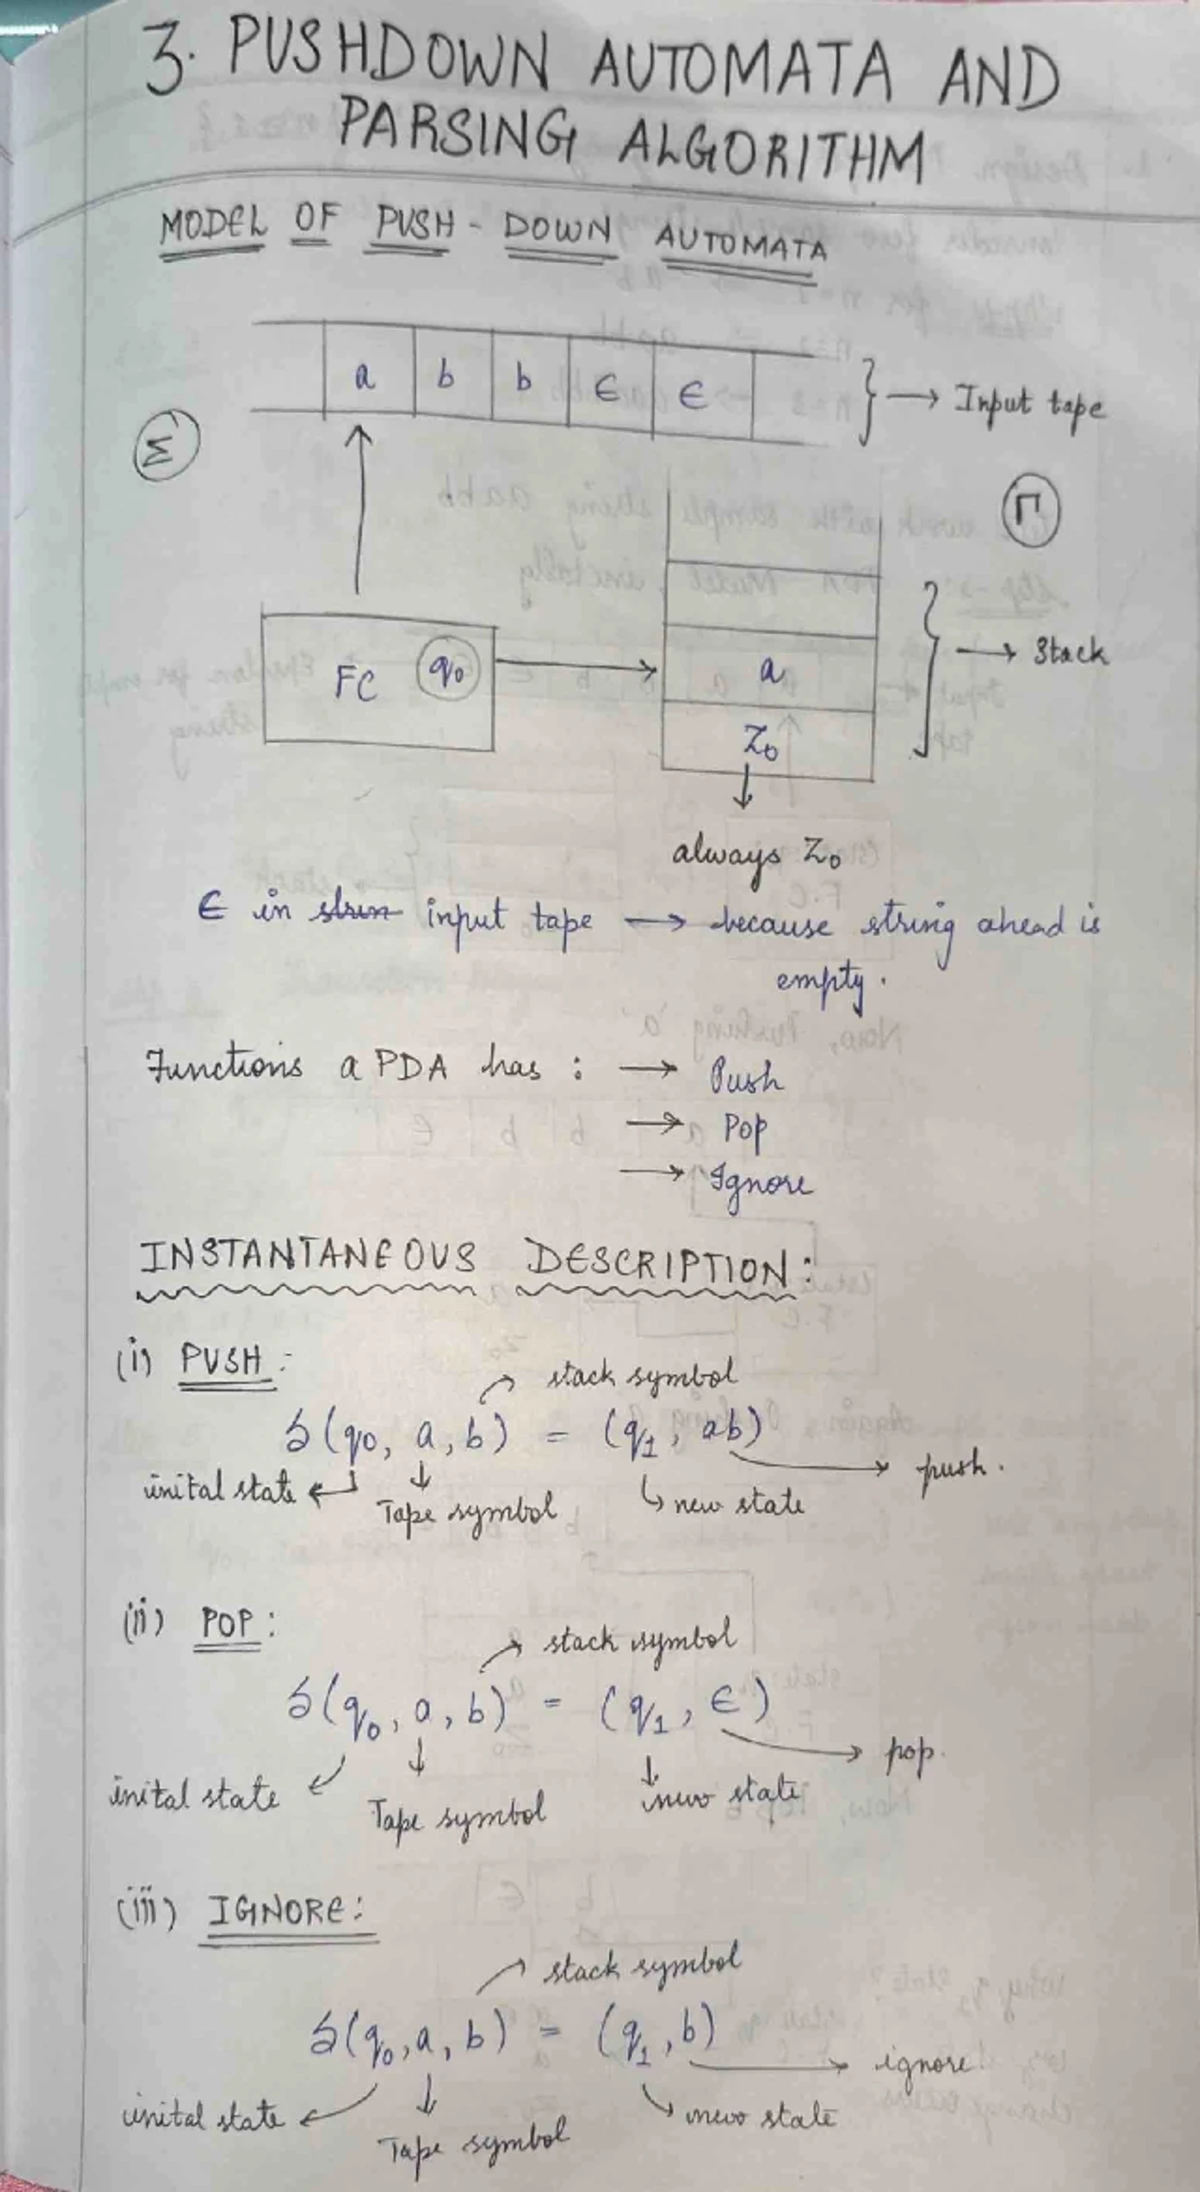 3. PUSHDOWN AUTOMATA AND
PARSING ALGORITHM
MODEL OF PUSH-DOWN AUTOMATA
a b b ϵ ϵ
→ Input tape
Σ
Γ
FC q₀
a
→ Stack
Z₀
always Z₀
ϵ in strin input tape → because string ahead is
empty.
Functions a PDA has : → Push
→ Pop
→ Ignore
INSTANTANEOUS DESCRIPTION:
(i) PUSH:
stack symbol
δ(q₀, a, b) = (q₁, ab)
push.
inital state
Tape symbol
new state
(ii) POP:
stack symbol
δ(q₀, a, b) = (q₁, ϵ)
pop.
inital state
Tape symbol
new state
(iii) IGNORE:
stack symbol
δ(q₀, a, b) = (q₁, b)
ignore
inital state
Tape symbol
new state